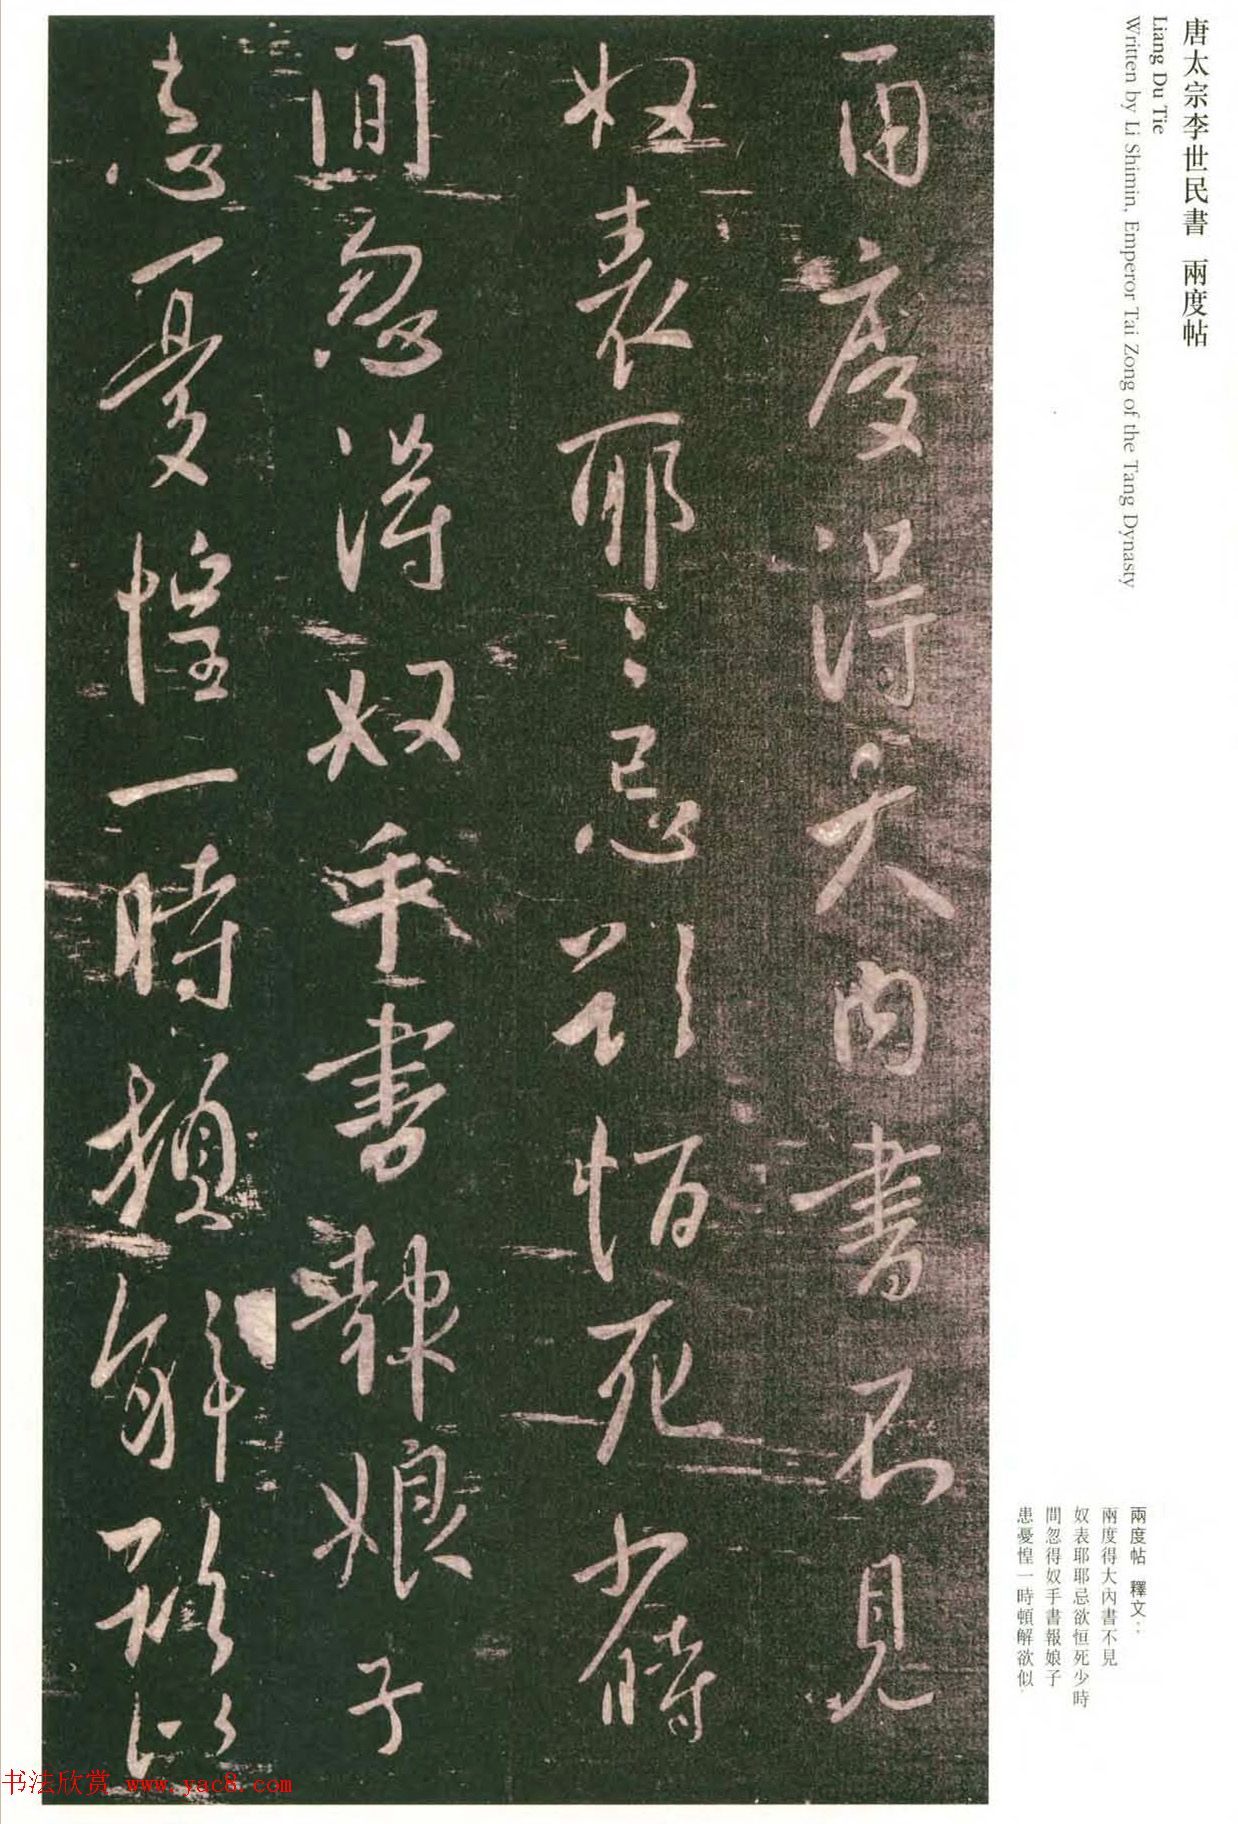 唐太宗李世民書 兩度帖
Liang Du Tie
Written by Li Shimin, Emperor Tai Zong of the Tang Dynasty
兩度得大內書不見
奴表耶〻忌欲恒死少時
間忽得奴手書報娘子
患憂惶一時頓解欲似
兩度帖 釋文：
兩度得大內書不見
奴表耶耶忌欲恒死少時
間忽得奴手書報娘子
患憂惶一時頓解欲似
书法欣赏 www.yac8.com